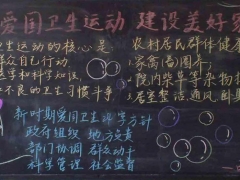 爱国卫生运动 建设美好家
卫生运动的核心是
群众自己行动
学和科学知识,
不良的卫生习惯斗争
新时期爱国卫生工作方针
政府组织 地方负责
部门协调 群众动手
科学管理 社会监督
农村居民群体健康
家禽畜圈养,
院内柴草等杂物
居室整洁通风、卧具